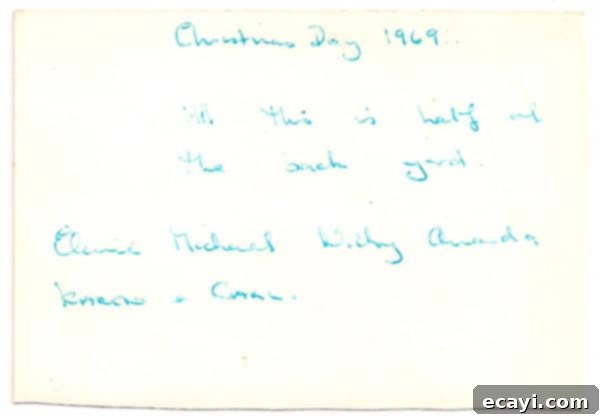 Christmas Day 1969.
NB this is half of
the back yard.
Elaine Michael Wilby Amanda
Karen + Carl.
ecayi.com